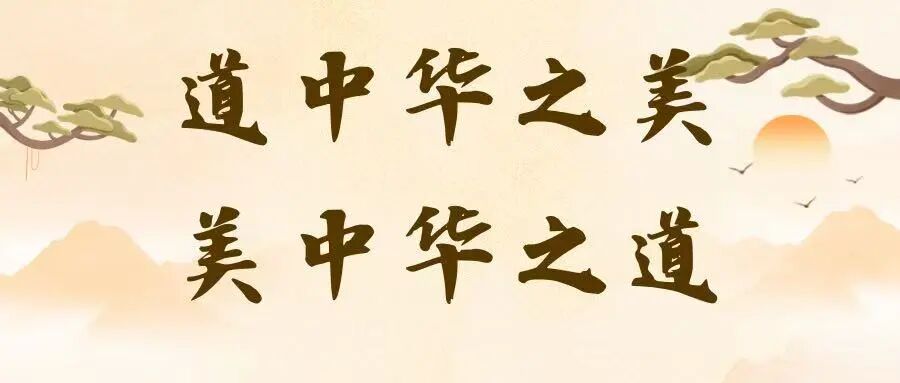 道中华之美
美中华之道